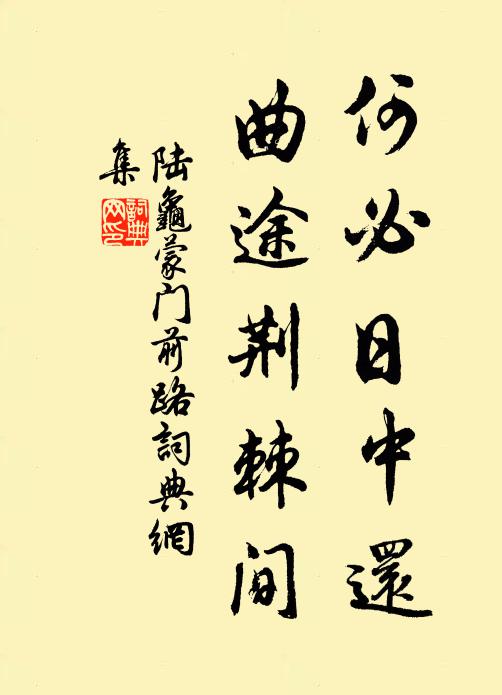 何必日中還
曲途荆棘间
陆龜蒙门前路詞典網
集
詞典
网印